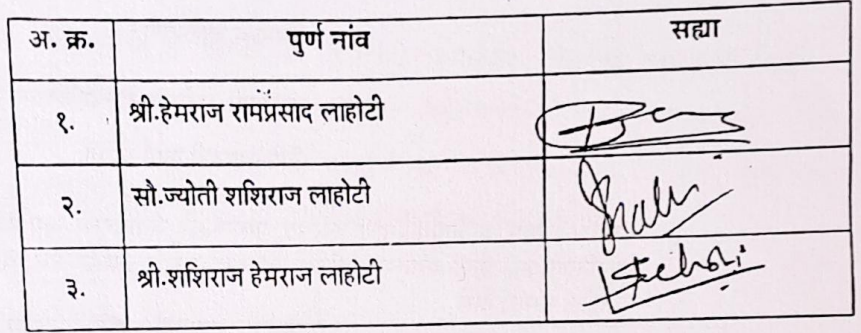 अ. क्र. पुर्ण नांव सह्या
१. श्री.हेमराज रामप्रसाद लाहोटी
२. सौ.ज्योती शशिराज लाहोटी
३. श्री.शशिराज हेमराज लाहोटी